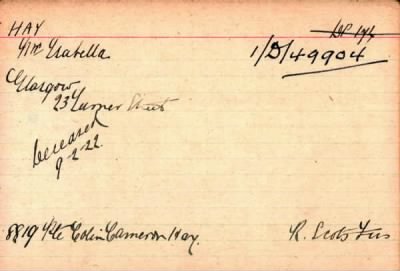 HAY
Mrs Isabella
1/D/49904
Glasgow
23 Turner Street
Deceased
9.2.22.
8819 Pte Colin Cameron Hay.
R. Scots Fus